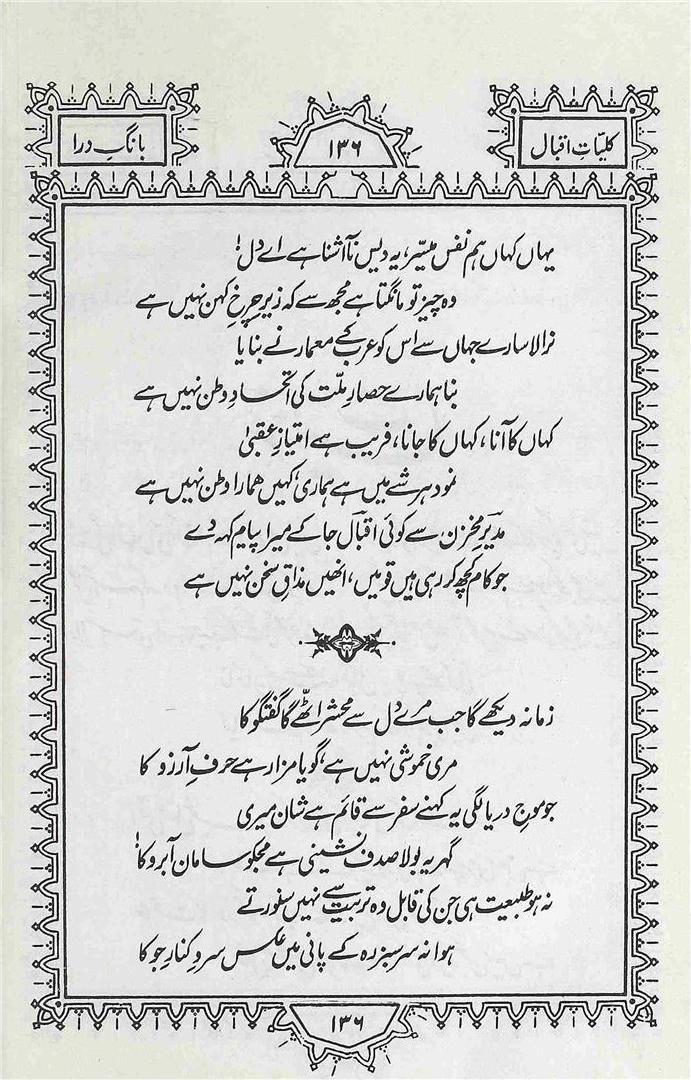 کلیّاتِ اقبال
۱۳۶
بانگِ درا
یہاں کہاں ہم نفس میسّر، یہ دیس ناآشنا ہے اے دل!
وہ چیز تو مانگتا ہے مجھ سے کہ زیرِ چرخِ کہن نہیں ہے
نرالا سارے جہاں سے اس کو عرب کے معمار نے بنایا
بنا ہمارے حصارِ ملّت کی اتّحادِ وطن نہیں ہے
کہاں کا آنا، کہاں کا جانا، فریب ہے امتیازِ عقبیٰ
نمود ہر شے میں ہے ہماری، کہیں ہمارا وطن نہیں ہے
مدیرِ مخزن سے کوئی اقبالؔ جا کے میرا پیام کہہ دے
جو کام کچھ کر رہی ہیں قومیں، انھیں مذاقِ سخن نہیں ہے
زمانہ دیکھے گا جب مرے دل سے محشر اٹھّے گا گفتگو کا
مری خموشی نہیں ہے، گویا مزار ہے حرفِ آرزو کا
جو موجِ دریا لگی یہ کہنے سفر سے قائم ہے شان میری
گہر یہ بولا صدف نشینی ہے مجھ کو سامان آبرو کا!
نہ ہو طبیعت ہی جن کی قابل وہ تربیت سے نہیں سنورتے
ہوا نہ سرسبز رہ کے پانی میں عکس سروِ کنارِ جو کا
۱۳۶